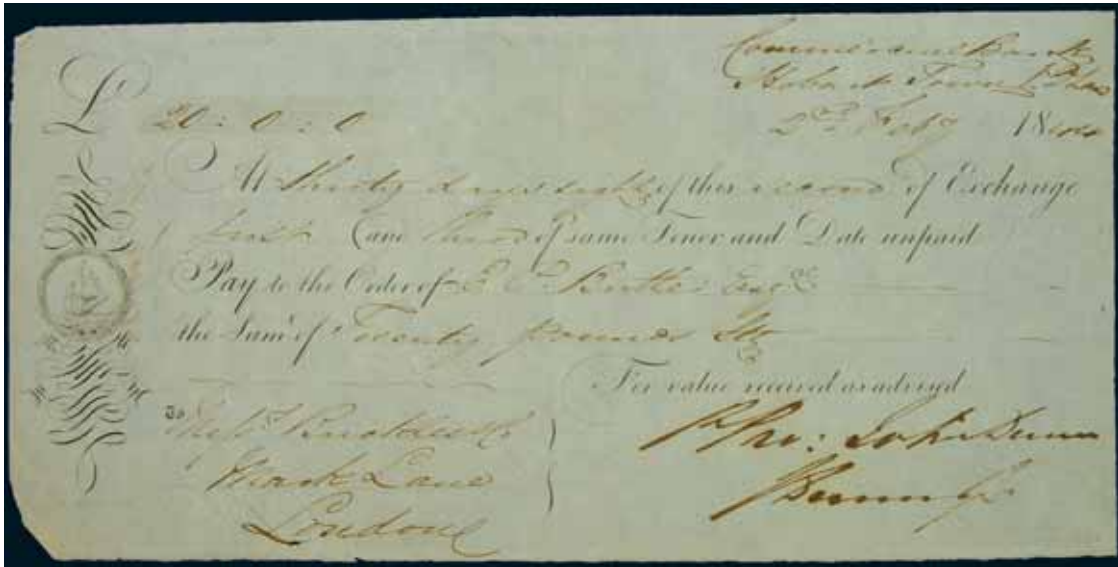 Commercial Bank
Hobart Town
£ 20 : 0 : 0
2nd Feby 18
At thirty days sight of this second of Exchange
(first and third of same Tenor and Date unpaid
Pay to the Order of E. C. Butler Esqre
the Sum of Twenty pounds Stg
For value received as advised
To Messrs
Mark Lane
London
P Pro: John Dunn
J Dunn Jr